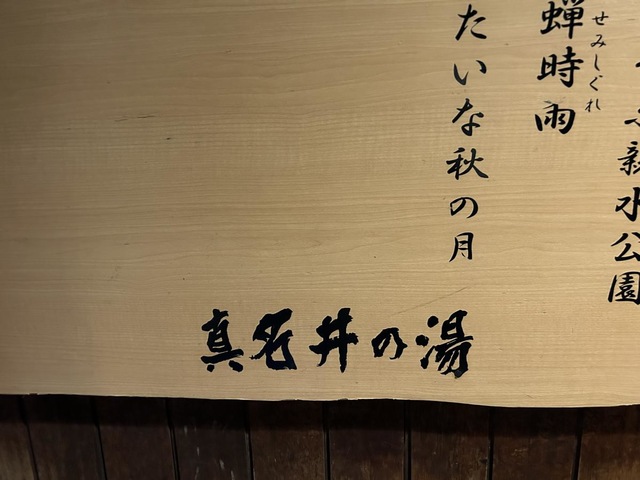 親水公園
蝉時雨
せみしぐれ
たいな秋の月
真名井の湯